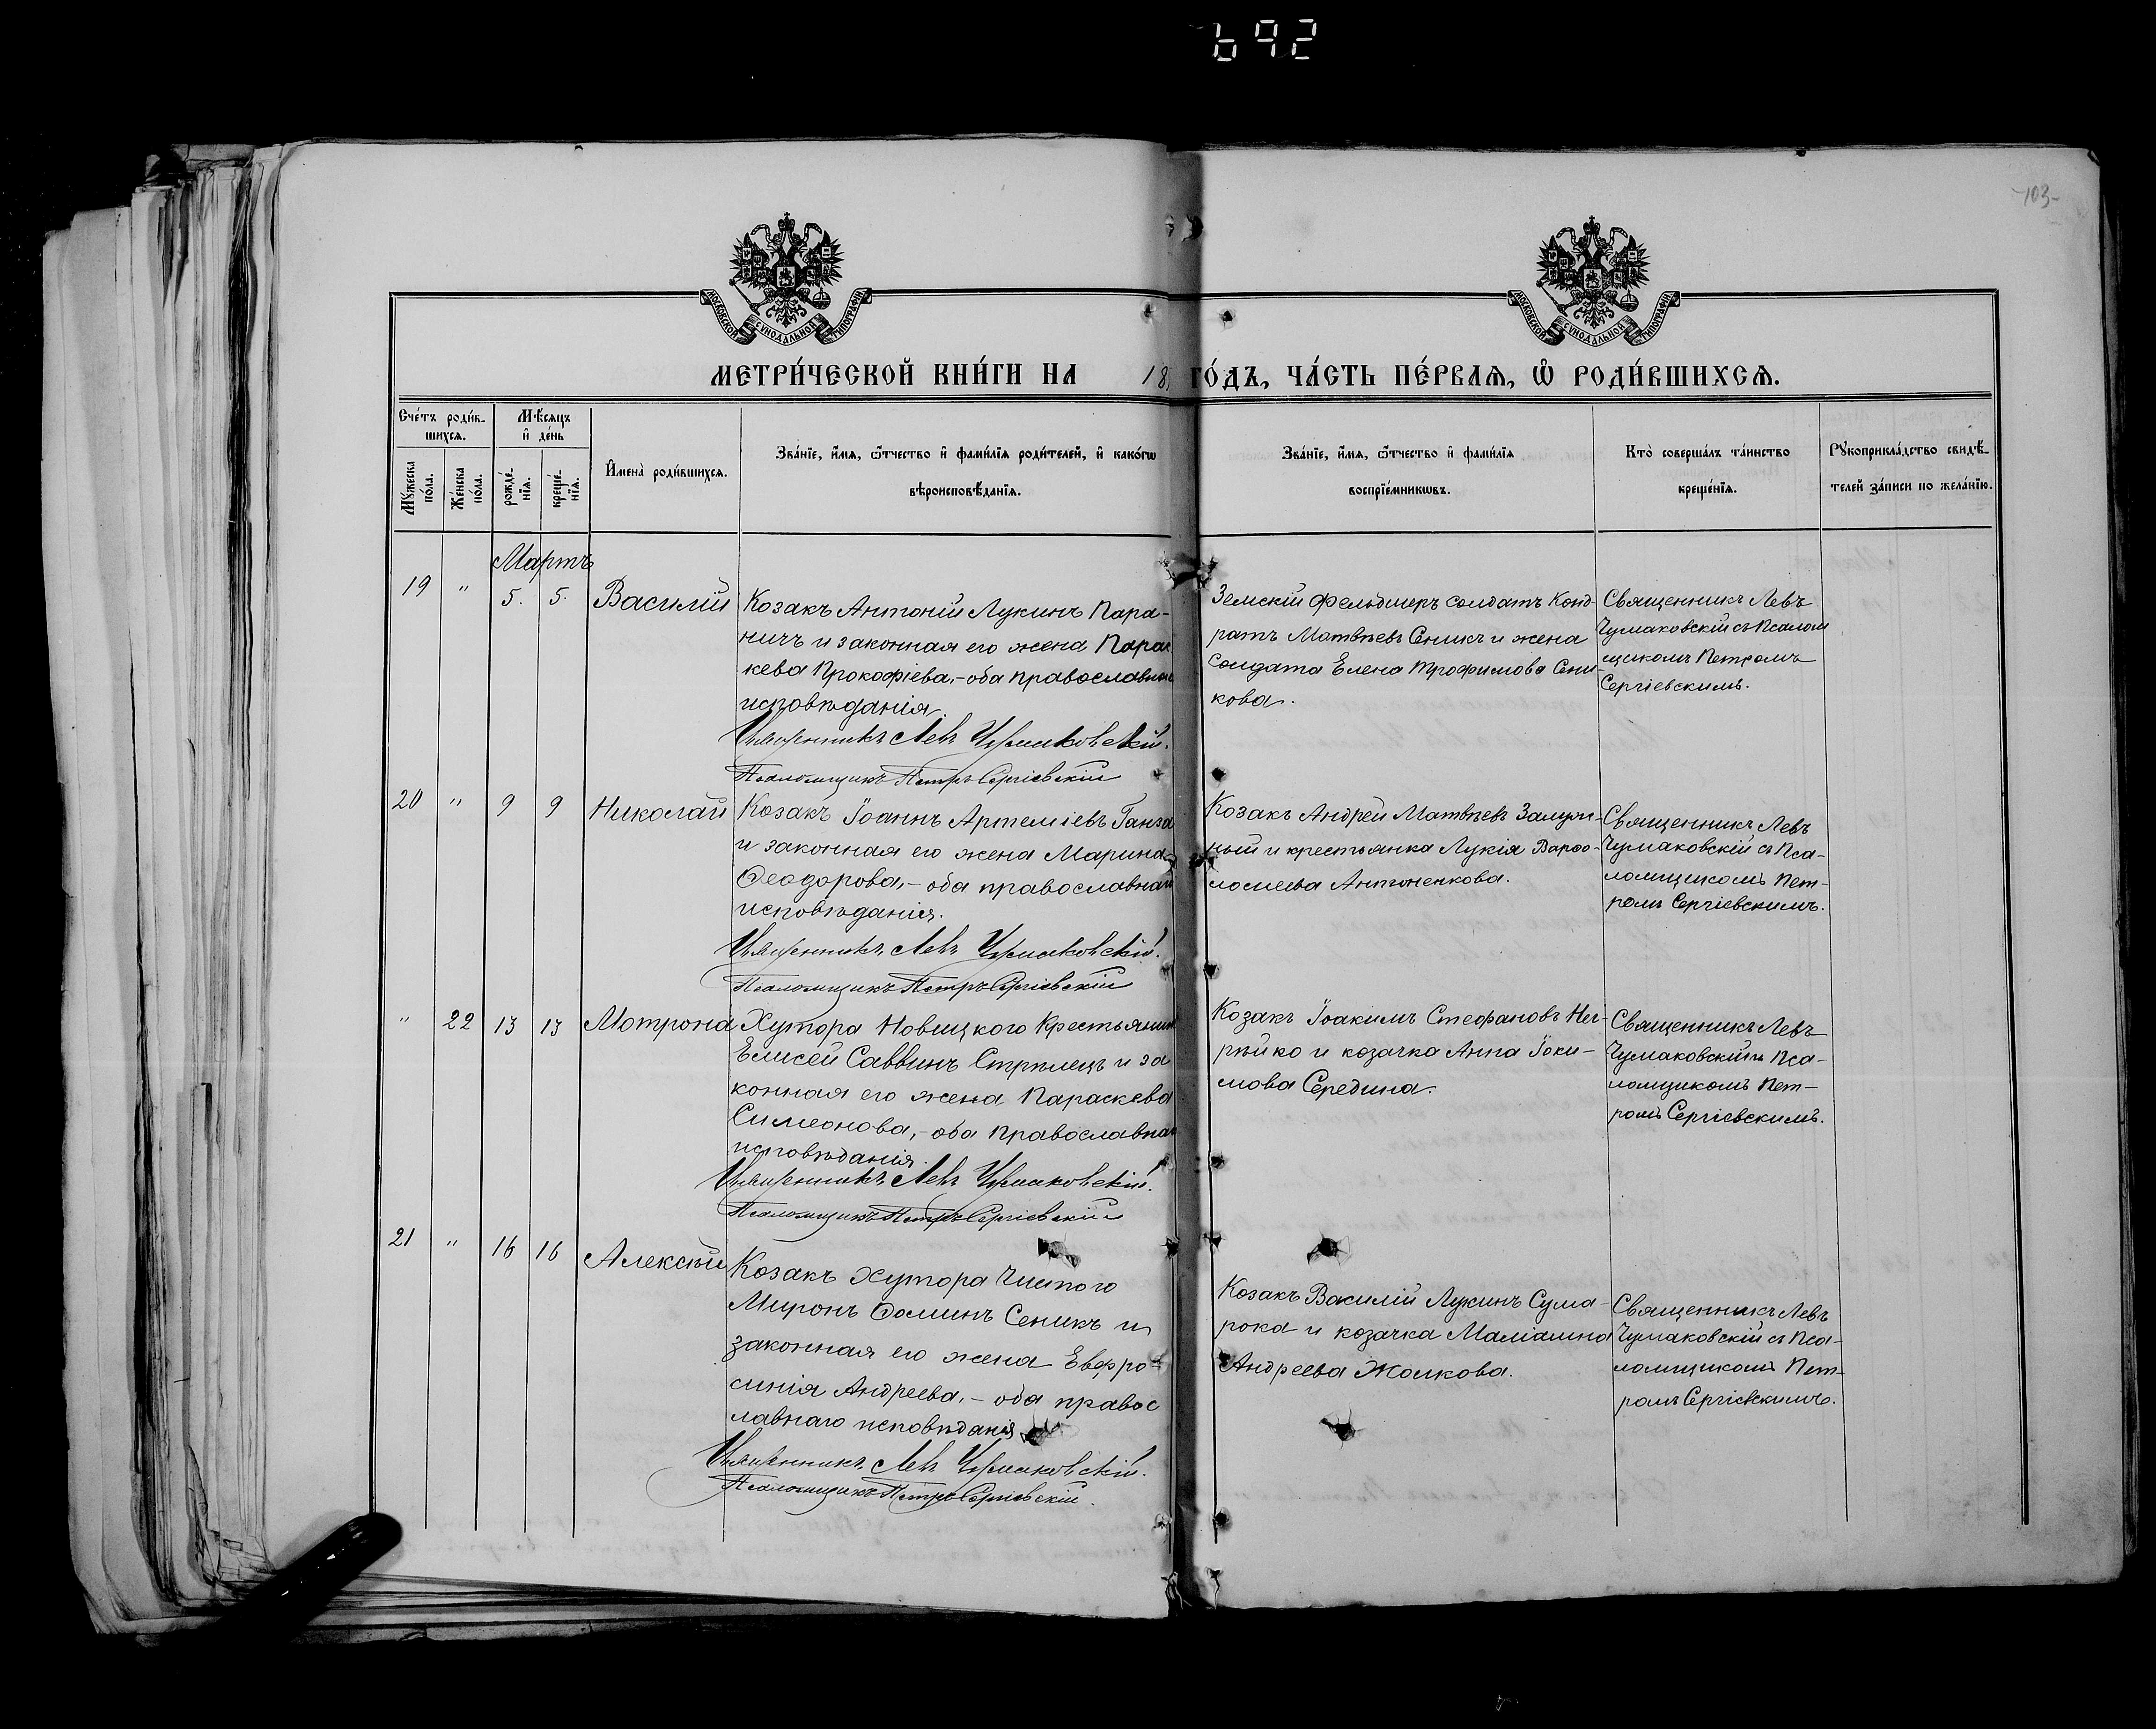 692
103-
МОСКОВСКОЙ СУНОДАЛЬНОЙ ТИПОГРАФІИ
МОСКОВСКОЙ СУНОДАЛЬНОЙ ТИПОГРАФІИ
МЕТРИ́ЧЕСКОЙ КНИ́ГИ НА 18 ГО́ДЪ, ЧА́СТЬ ПЕ́РВАЯ, Ѡ҆ РОДИ́ВШИХСЯ.
Сче́тъ роди́в-
шихся.
Мꙋжеска по́ла.
Же́нска по́ла.
Мѣ́сяцъ
и҆ де́нь
рожде́-
нїя.
креще́-
нїя.
И҆мена̀ роди́вшихся.
Зва́нїе, и҆́мя, ѻ҆́тчество и҆ фами́лїя роди́телей, и҆ како́гѡ
вѣроисповѣ́данїя.
Зва́нїе, и҆́мя, ѻ҆́тчество и҆ фами́лїя
воспрїе́мникѡвъ.
Кто̀ соверша́лъ та́инство
креще́нїя.
Рꙋкоприкла́дство свидѣ́-
телей за́писи по жела́нїю.
Мартъ
19 " 5. 5. Василій
Козакъ Антоній Лукинъ Пара-
ничъ и законная его жена Парас
кева Прокофіева,- оба православнаго
исповѣданія.
Священникъ Левъ Чумаковскій.
Псаломщикъ Петръ Сергіевскій
Земскій фельдшеръ солдатъ Конд-
ратъ Матвѣевъ Сеникъ и жена
солдата Елена Трофимова Сени-
кова.
Священникъ Левъ
Чумаковскій съ Псалом
щикомъ Петромъ
Сергіевскимъ.
20 " 9 9 Николай
Козакъ Іоаннъ Артеміевъ Ганжа
и законная его жена Марина
Ѳеодорова,- оба православнаго
исповѣданія.
Священникъ Левъ Чумаковскій.
Псаломщикъ Петръ Сергіевскій
Козакъ Андрей Матвѣевъ
ный и крестьянка Лукія Варѳо-
ломеева Антоненкова.
Священникъ Левъ
Чумаковскій съ Пса-
ломщикомъ Пет-
ромъ Сергіевскимъ.
" 22 13 13 Мотрона
Хутора Новицкого Крестьянинъ
Елисей Саввинъ Стрѣлецъ и за
конная его жена Параскева
Симеонова,- оба православнаго
исповѣданія.
Священникъ Левъ Чумаковскій.
Псаломщикъ Петръ Сергіевскій
Козакъ Іоакимъ Стефановъ Не-
рѣйко и козачка Анна Іоки-
мова Середина.
Священникъ Левъ
Чумаковскій съ Пса-
ломщикомъ Пет-
ромъ Сергіевскимъ.
21 " 16 16 Алексѣй
Козакъ Хутора Чистого
Миронъ Ѳоминъ Сеникъ и
законная его жена Евфро-
синія Андреева,- оба правос
лавнаго исповѣданія
Священникъ Левъ Чумаковскій.
Псаломщикъ Петръ Сергіевскій.
Козакъ Василій Лукинъ Сума-
рока и козачка
Андреева Жолкова.
Священникъ Левъ
Чумаковскій съ Пса-
ломщикомъ Пет-
ромъ Сергіевскимъ.